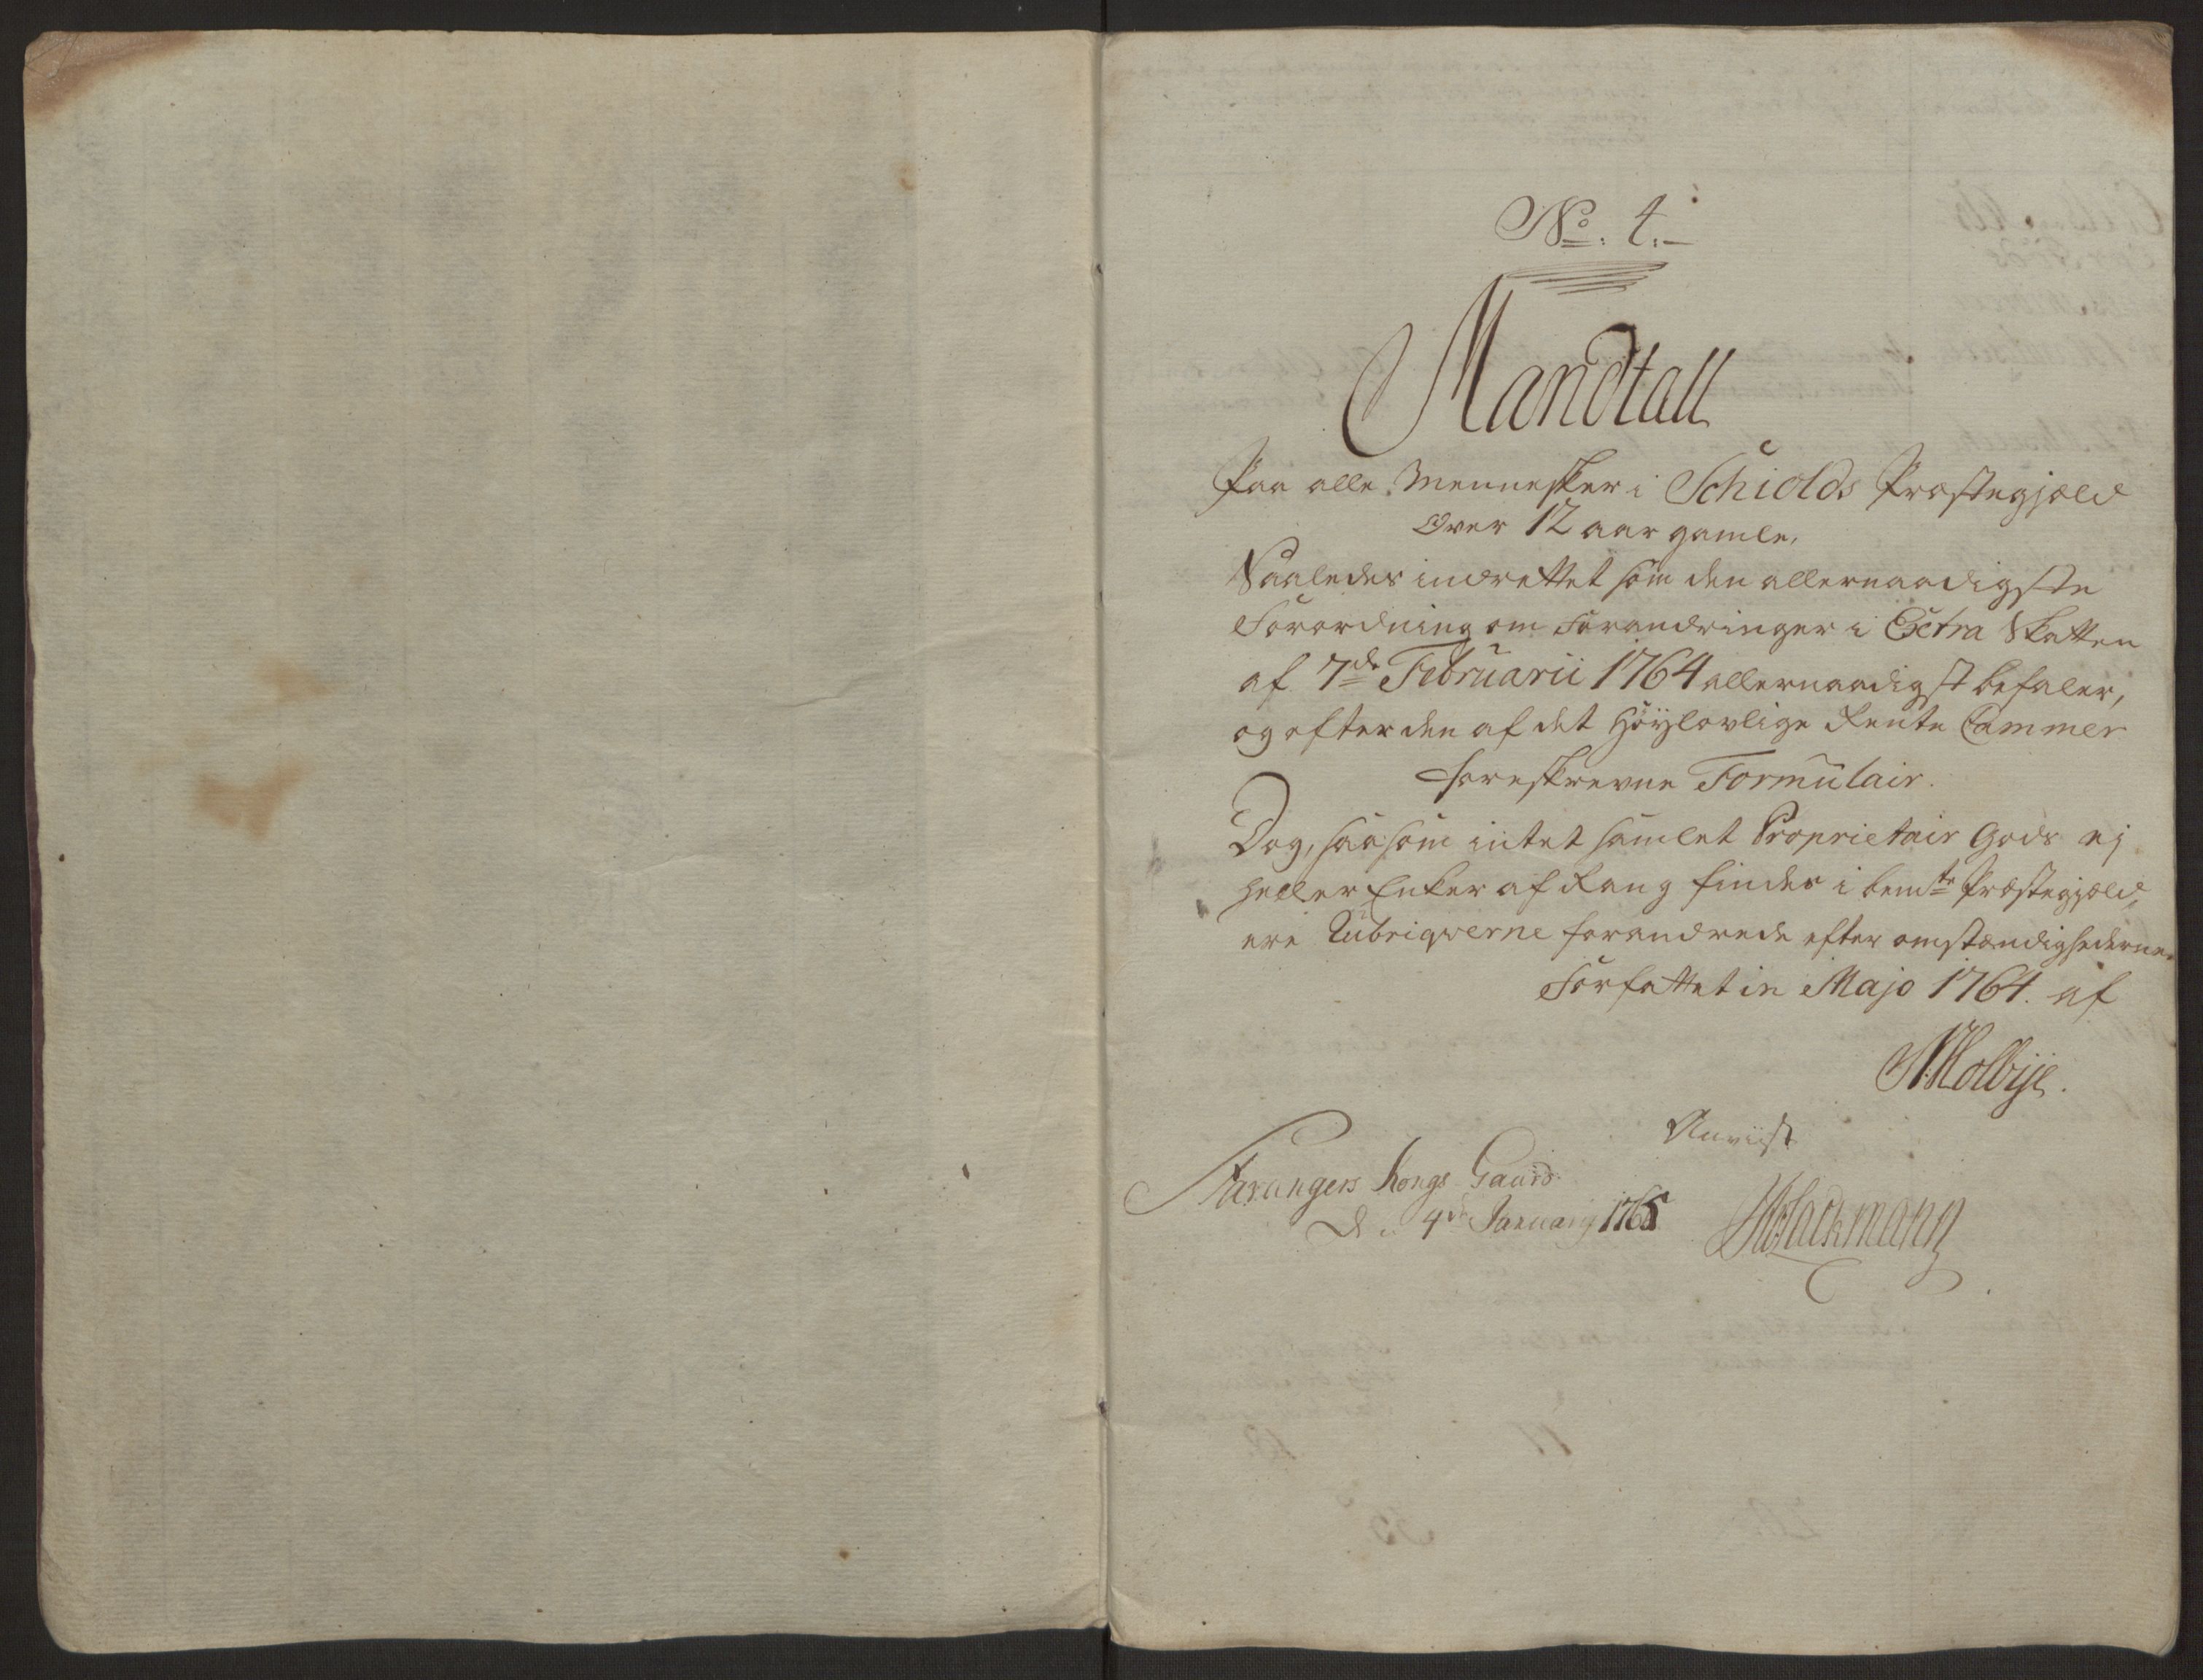 No. 4.
Mandtall
Paa alle Mennesker i Schiolds Præstegjæld
Over 12 aar gamle,
Saaledes indrettet som den allernaadigste
Forordning om Forandringer i Extra Skatten
af 7de Februarii 1764 allernaadigst befaler,
og efter den af det Höylovlige Rente Cammer
foreskrevne Formulair.
Dog, saasom intet samlet Proprietair Gods ej
heller Enker af Rang findes i bemte Præstegjæld,
ere Rubriqverne forandrede efter omstændighederne.
Forfattet in Majo 1764. af
Molbye.
Anviist
Stavangers Kongs Gaard
D 4de January 1765
Hackmann